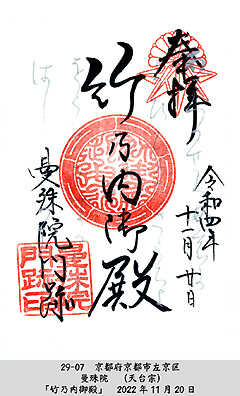 奉拝
令和四年
十一月廿日
竹乃内御殿
曼殊院門跡
29-07 京都府京都市左京区
曼殊院 (天台宗)
「竹乃内御殿」 2022年11月20日